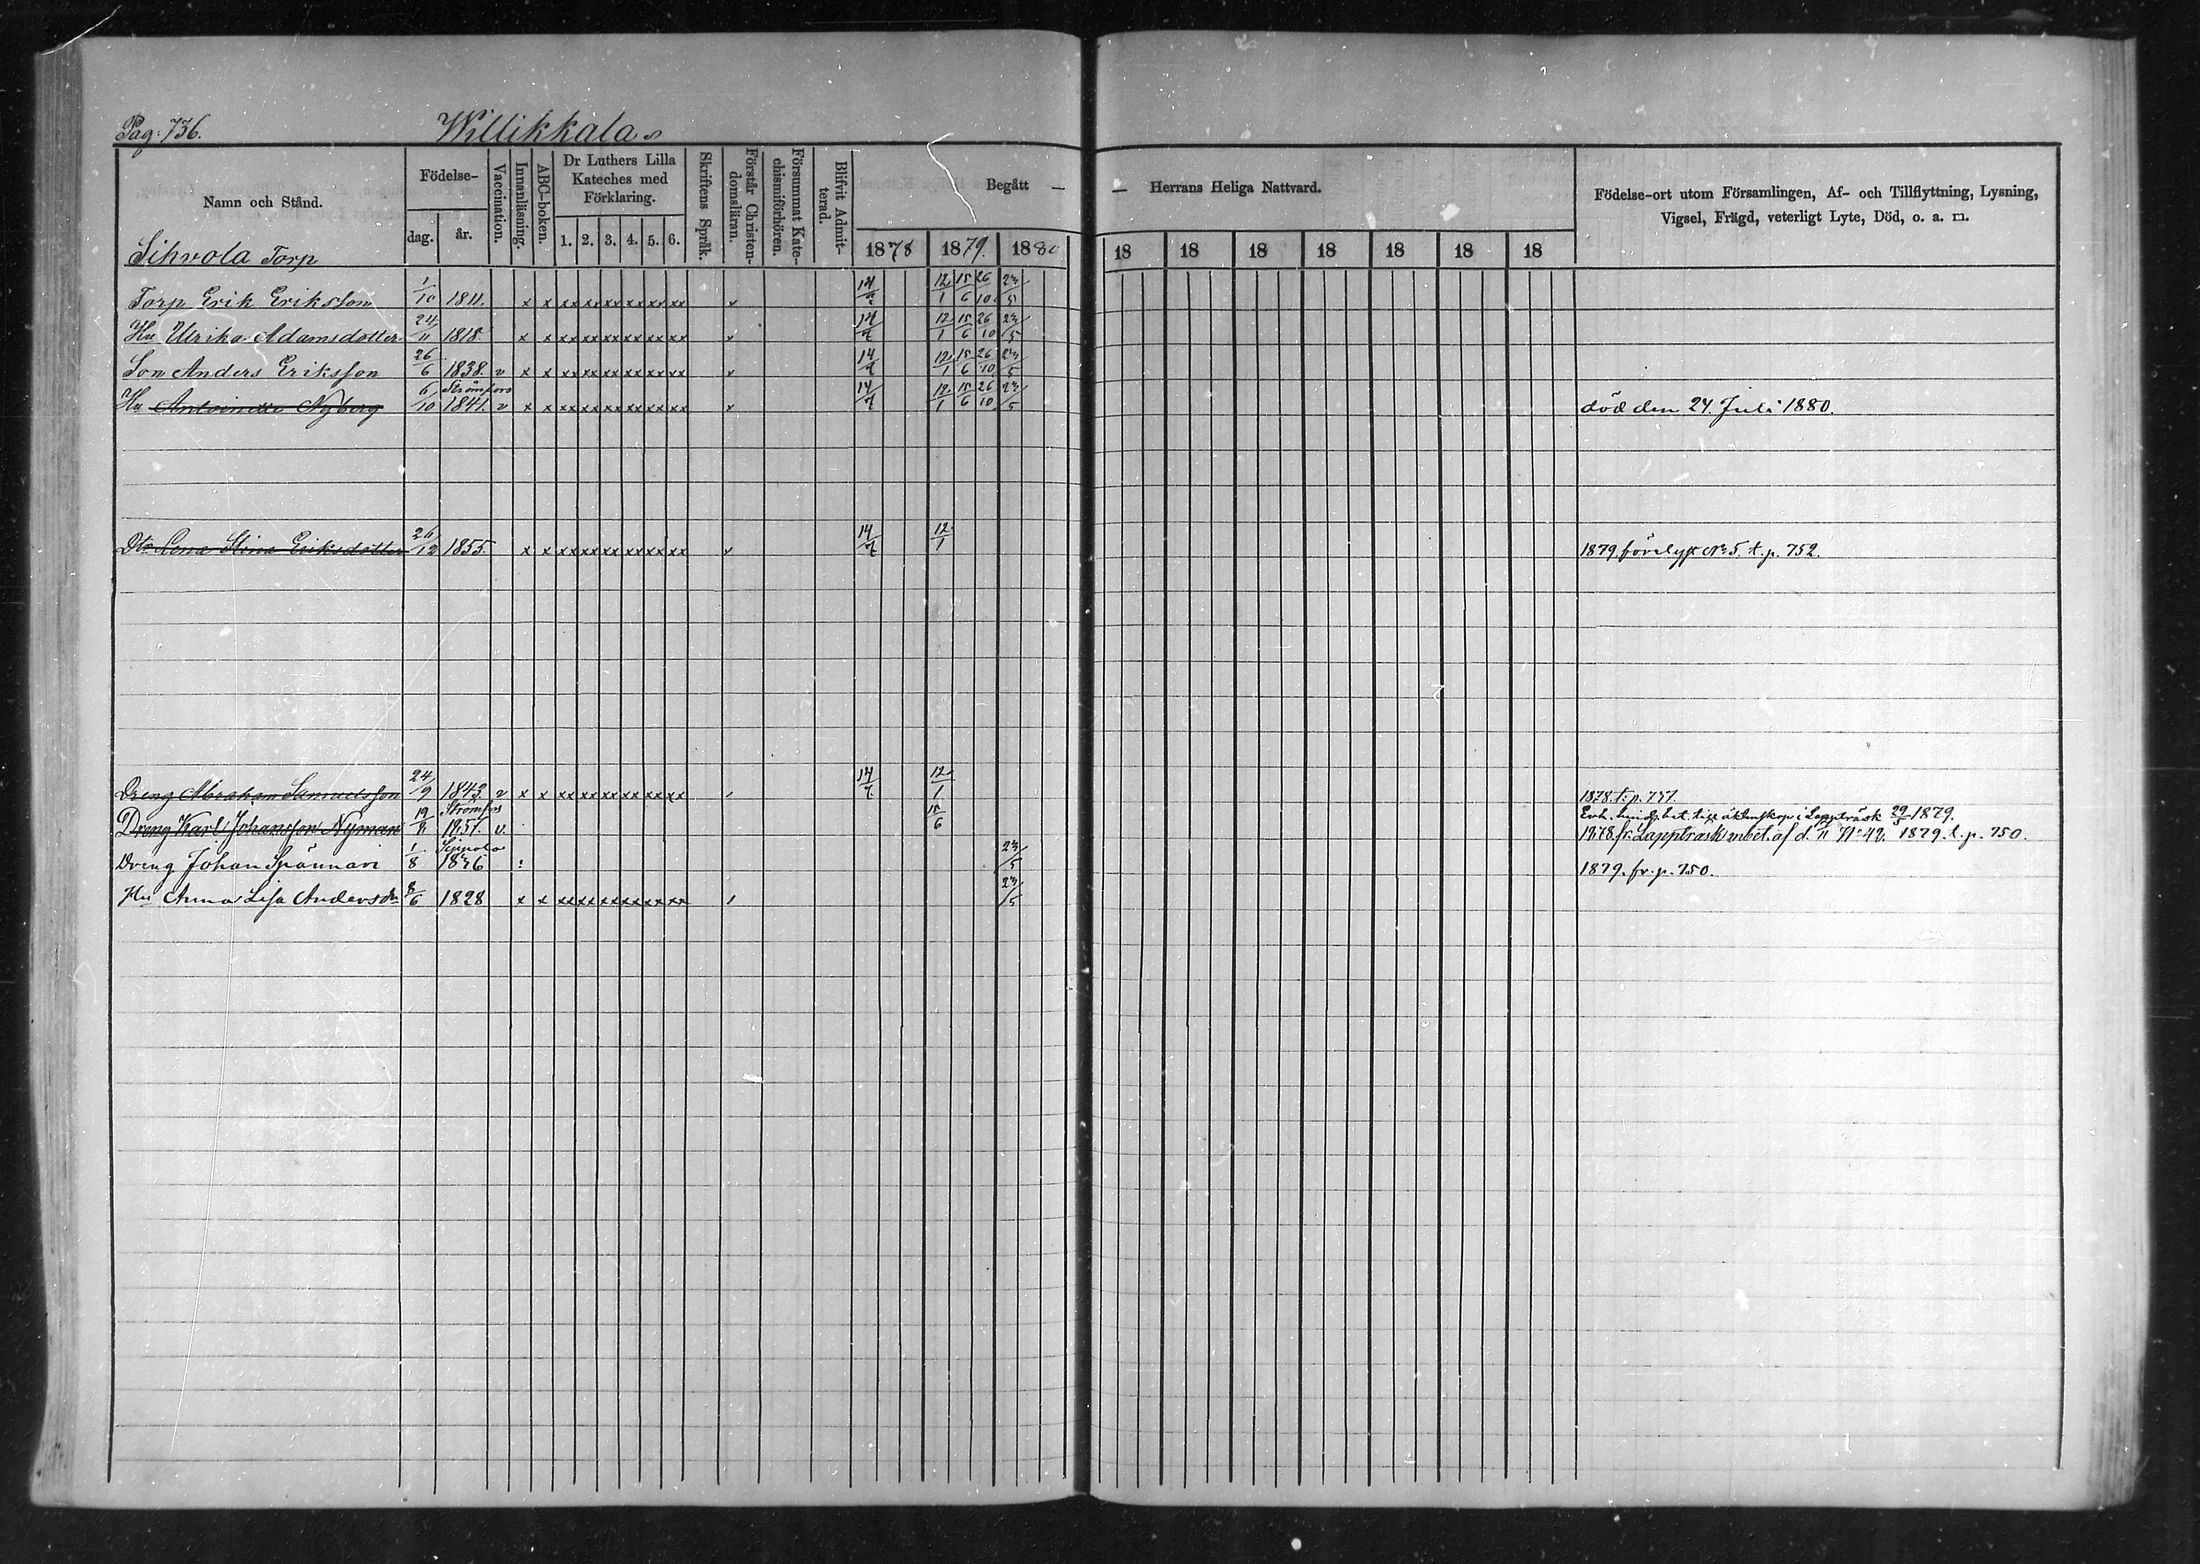 Pag: 736. Willikkala
Namn och Stånd. Födelse- dag. år. Vaccination. Innanläsning. ABC-boken. Dr Luthers Lilla Kateches med Förklaring. 1. 2. 3. 4. 5. 6. Skriftens Språk. Förstår Christendomsläran. Försummat Katechismiförhören. Blifvit Admitterad. Begått — — Herrans Heliga Nattvard. Födelse-ort utom Församlingen, Af- och Tillflyttning, Lysning, Vigsel, Frägd, veterligt Lyte, Död, o. a. m.
1878 1879. 1880 18 18 18 18 18 18 18
Sihvola Torp
Torp Erik Eriksson 1/10 1811. x x xx xx xx xx xx xx 12/1 15/6 26/10 23/5
Hu Ulrika Adamsdotter 24/11 1818 x x xx xx xx xx xx xx 14/7 12/1 15/6 26/10 23/5
Son Anders Eriksson 26/6 1838. v x x xx xx xx xx xx xx 14/7 12/1 15/6 26/10 23/5
Hu Antoinette Nyberg 6/10 Strömfors 1841. v x x xx xx xx xx xx xx 14/7 12/1 15/6 26/10 23/5 död den 24. Juli 1880.
Dtr Lena Stina Eriksdotter 26/12 1855. x x xx xx xx xx xx xx 14/7 12/1 1879. N:o 5. t. p. 752.
Dreng Abraham Samuelsson 24/9 1843. v x x xx xx xx xx xx xx 14/7 12/1 1878. t. p.
Dreng Karl Johansson Nyman Strömfors v. 15/6 i Lappträsk 29/5 1879.
1878. fr. Lappträsk m. bet. af d. 1879. t. p. 750.
Dreng Johan 1/8 Sippola 23/5 1879. fr. p. 750.
Hu Anna Lisa Andersdr 8/6 1828 x x xx xx xx xx xx xx 23/5